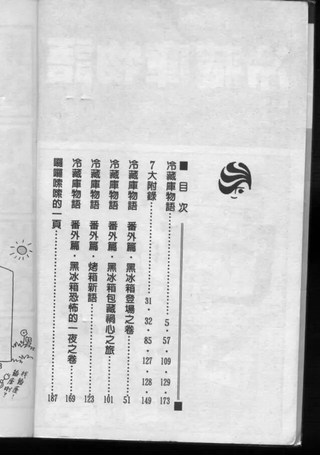 ■ 目次
冷藏庫物語……5・57・109・129・173
7大附錄……31・32・85・127・128・149
冷藏庫物語 番外篇・黑冰箱登場之卷……51
冷藏庫物語 番外篇・黑冰箱包藏禍心之旅……101
冷藏庫物語 番外篇・烤箱新語……123
冷藏庫物語 番外篇・黑冰箱恐怖的一夜之卷……169
囉囉嗦嗦的一頁……187